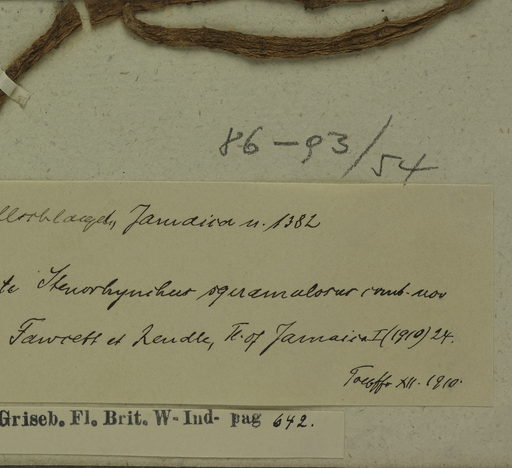 86-93/54
Jamaica n. 1382
Stenorhynchus squamulosus comb. nov
Fawcett et Rendle, Fl. of Jamaica I (1910) 24.
XII. 1910.
Griseb. Fl. Brit. W-Ind- pag 642.